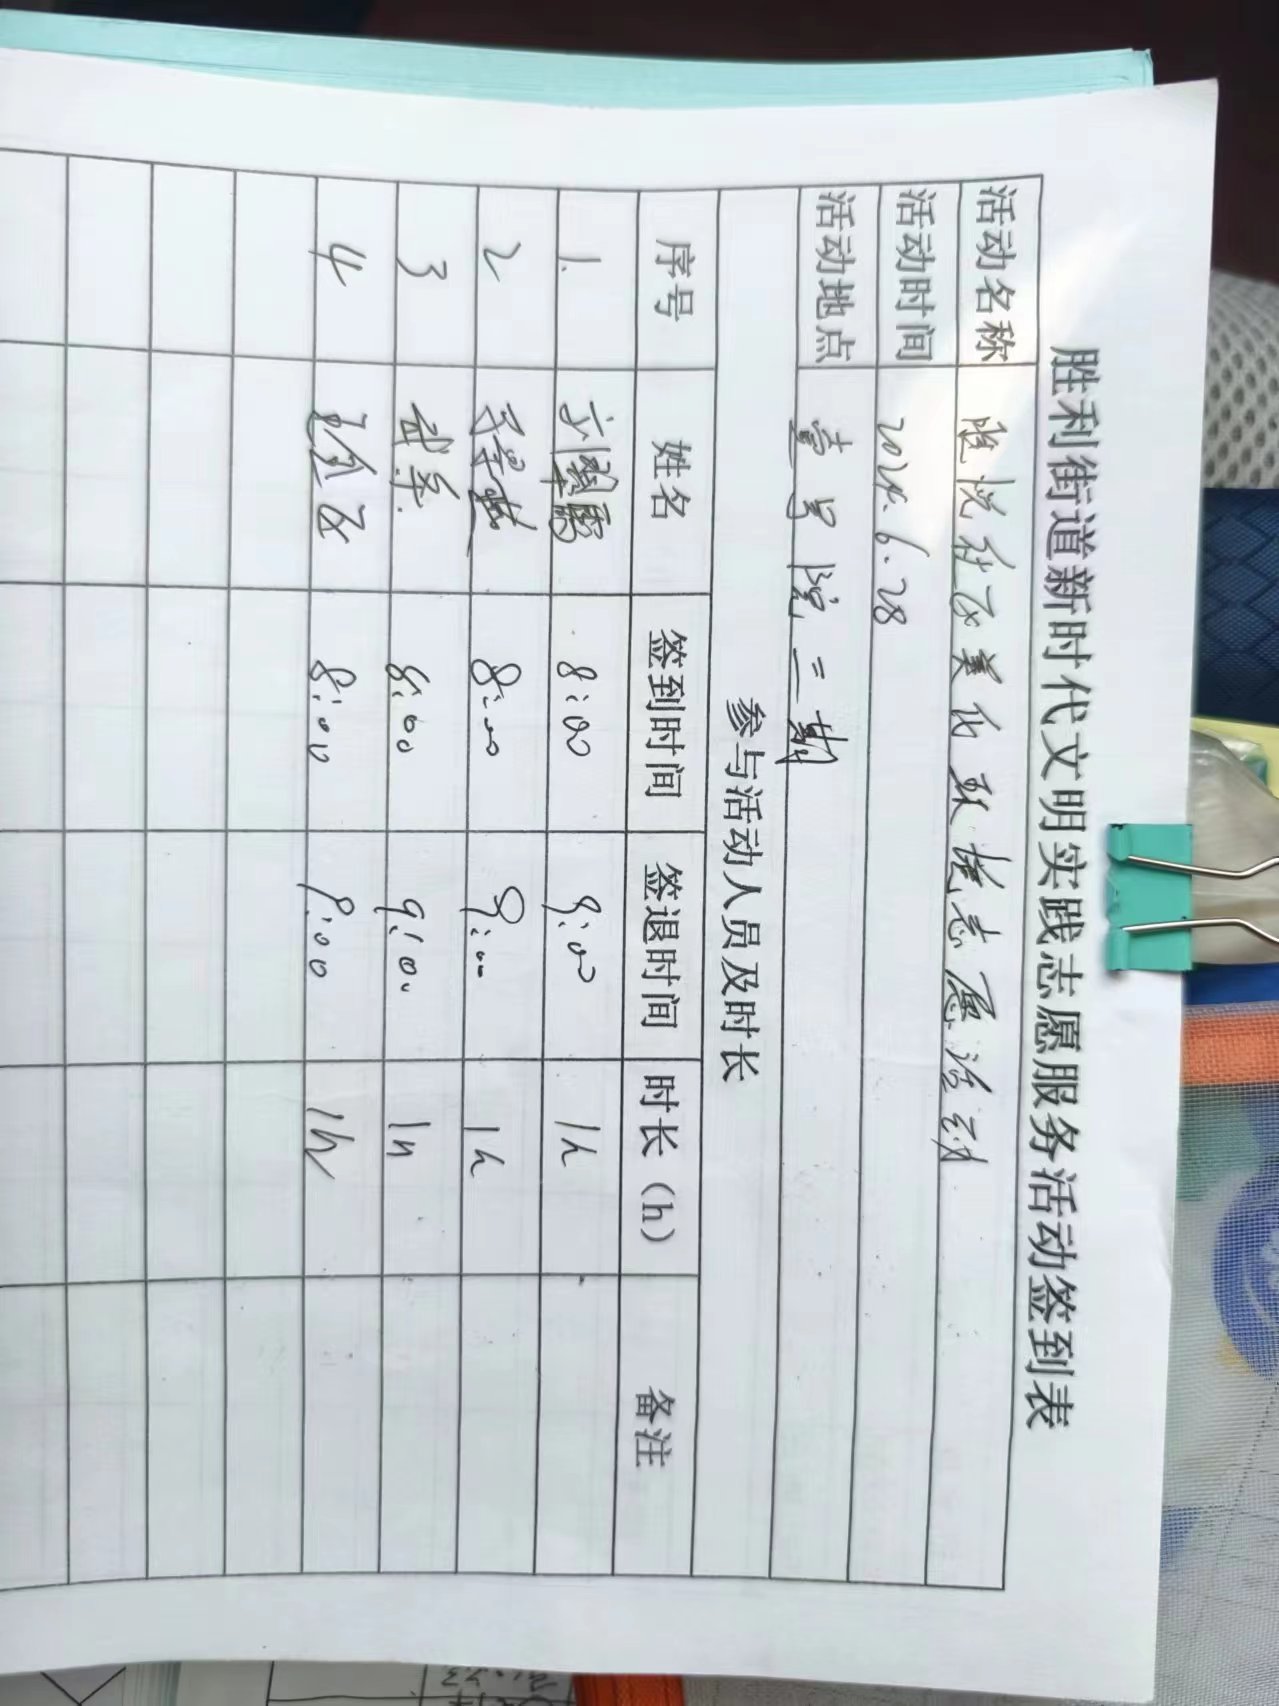 胜利街道新时代文明实践志愿服务活动签到表
活动名称 悦社区美化环境志愿活动
活动时间 2024.6.28
活动地点 壹号院三期
参与活动人员及时长
序号 姓名 签到时间 签退时间 时长（h） 备注
1. 8:00 9:00 1h
2 8:00 9:00 1h
3 武军 8:00 9:00 1h
4 8:00 9:00 1h